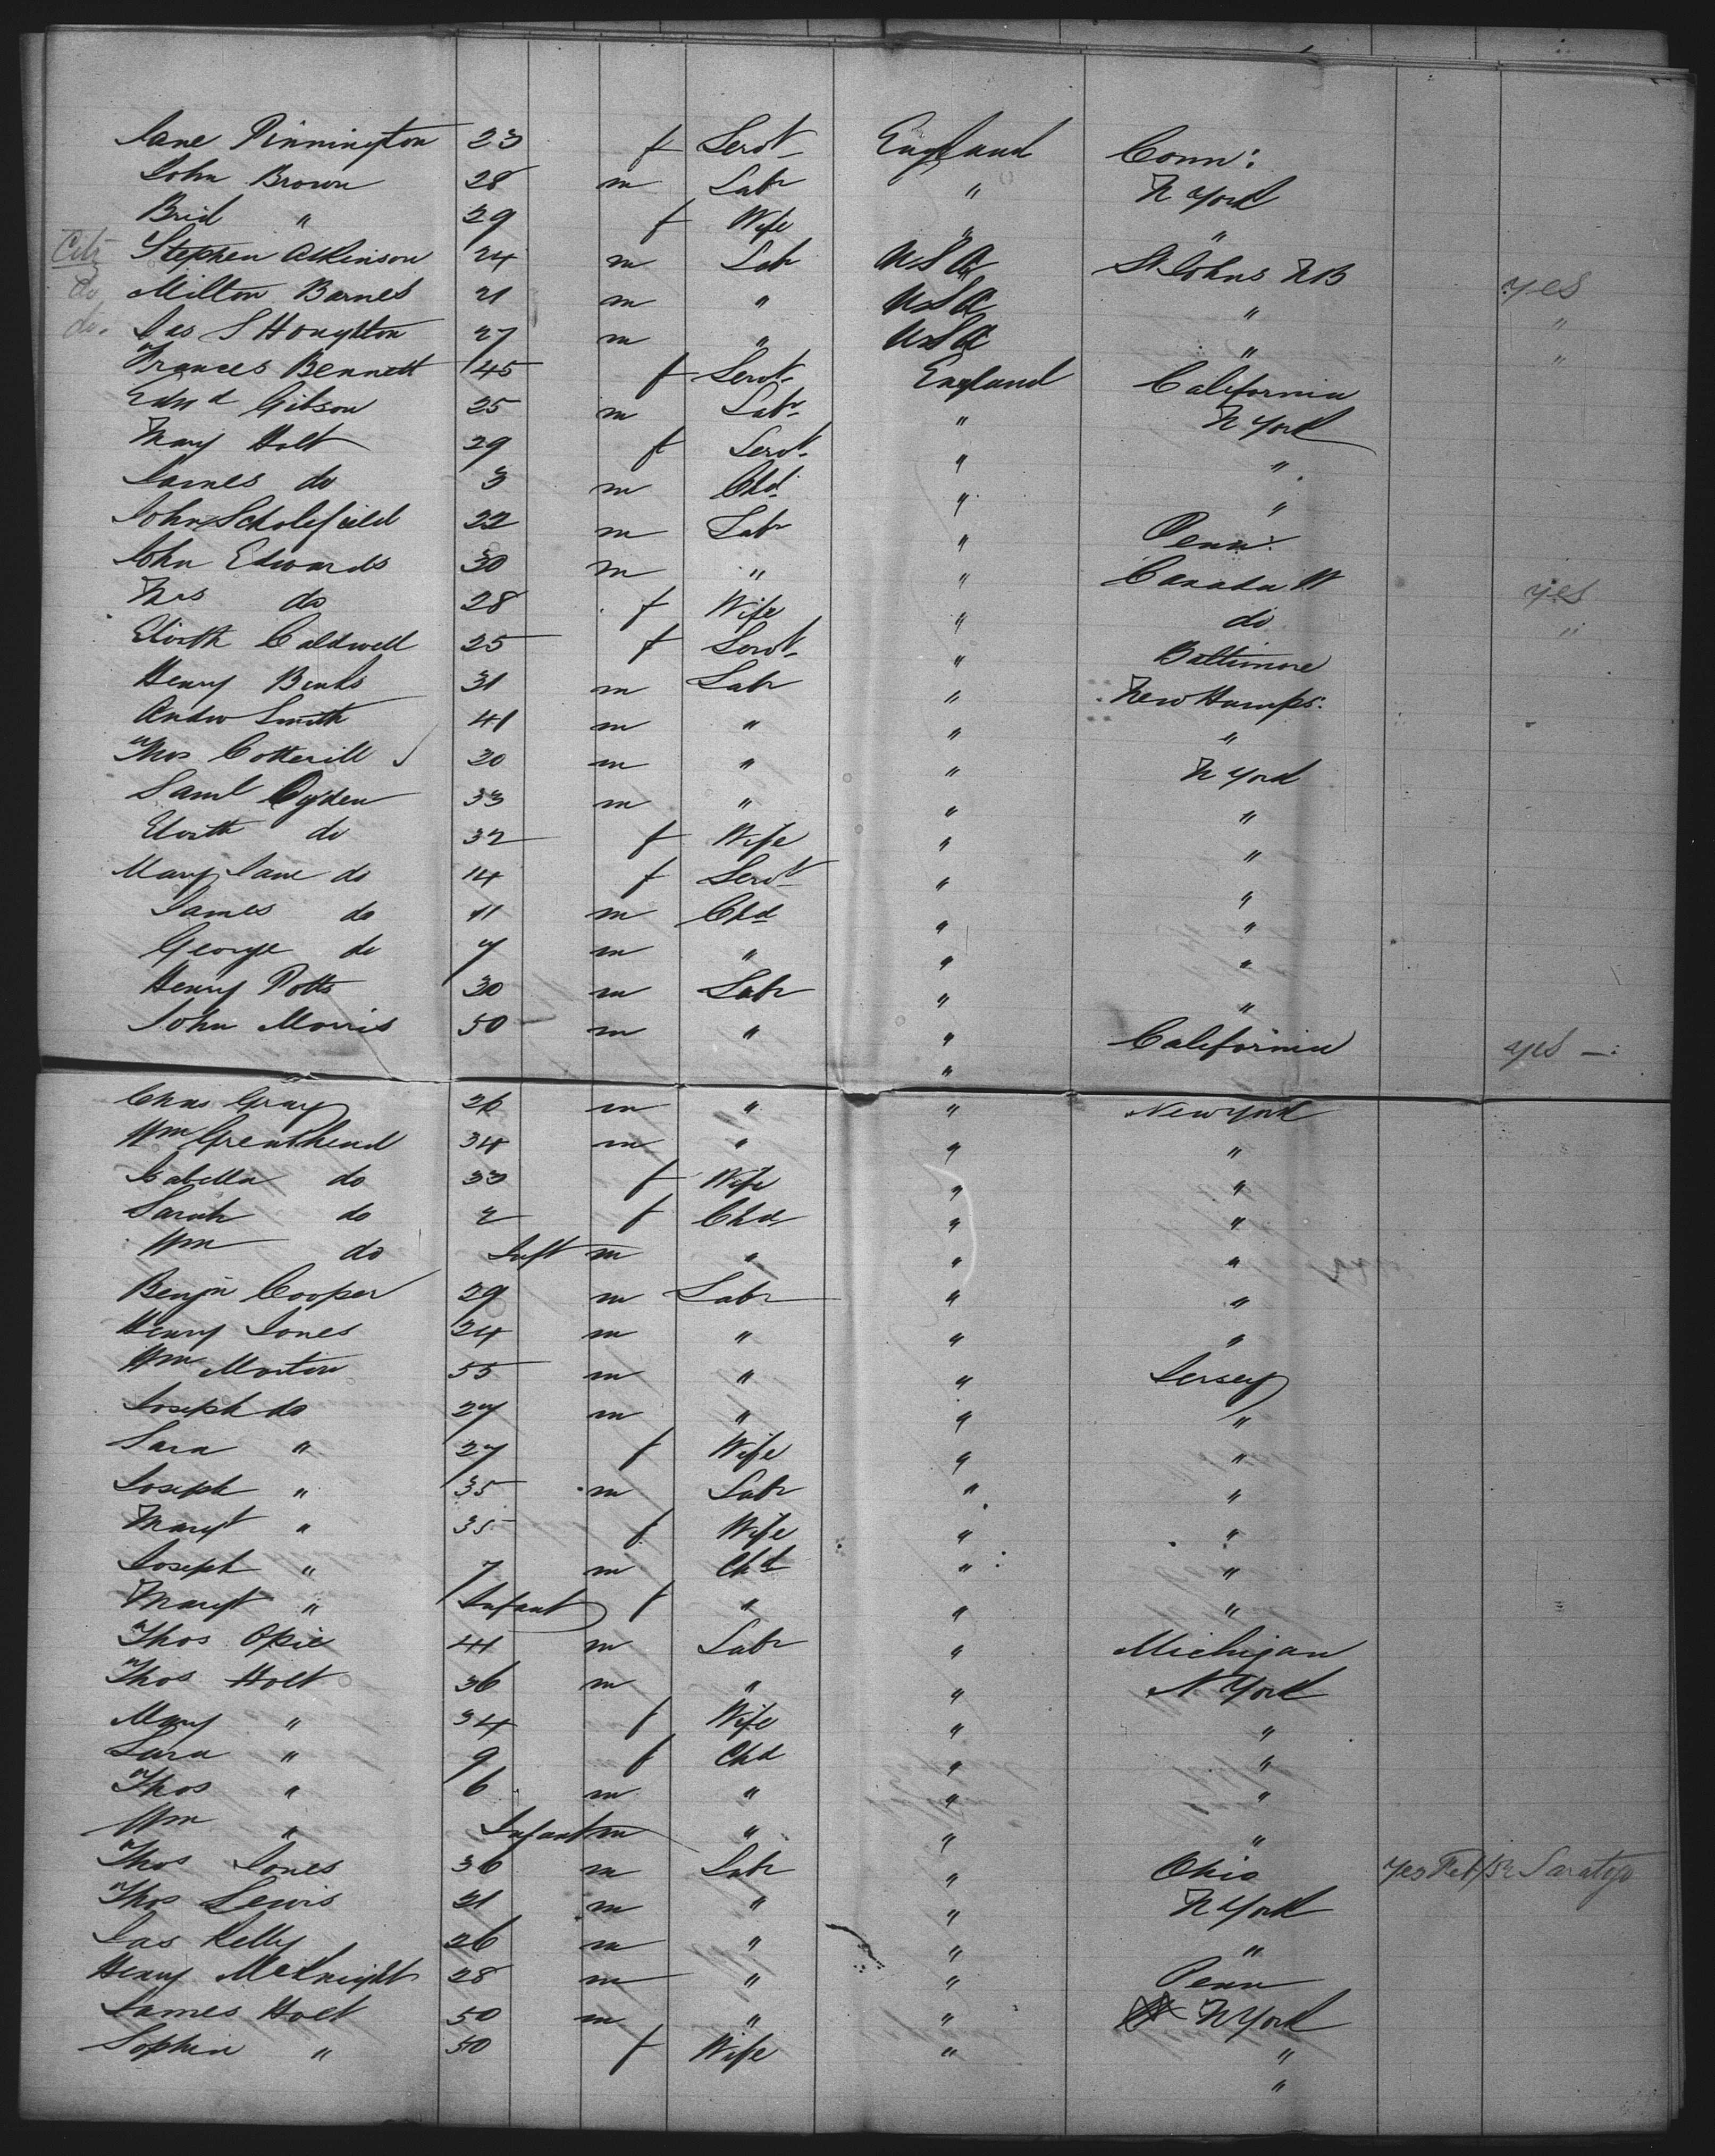 Jane Pinnington 23 f Servt England Conn:
John Brown 28 m Labr " N York
Brid " 29 f Wife " "
Citz Stephen Atkinson 24 m Lab U S A St Johns N B yes
do Milton Barnes 21 m " U S A " "
do. Jas S Houghton 27 m " U S A " "
Frances Bennett 45 f Servt England California
Edwd Gibson 25 m Labr " N York
Mary Holt 29 f Servt " "
James do 3 m Chd " "
John Scholefield 22 m Labr " Penn:
John Edwards 30 m " " Canada W yes
Mrs do 28 f Wife " do "
Elizth Caldwell 25 f Servt " Baltimore
Henry Banks 31 m Labr " New Hamps:
Andw Smith 41 m " " "
Thos Cotterill 20 m " " N York
Saml Ogden 33 m " " "
Elizth do 32 f Wife " "
Mary Jane do 14 f Servt " "
James do 11 m Chd " "
George do 7 m " " "
Henry Potts 30 m Labr " "
John Morris 50 m " " California yes
"
Chas Gray 26 m " " New York
Wm Greathead 34 m " " "
Isabella do 33 f Wife " "
Sarah do 2 f Chd " "
Wm do Inft m " " "
Benjn Cooper 29 m Labr " "
Henry Jones 24 m " " "
Wm Morton 55 m " " Jersey
Joseph do 27 m " " "
Sara " 27 f Wife " "
Joseph " 35 m Labr " "
Margt " 35 f Wife " "
Joseph " 7 m Chd " "
Margt " Infant f " " "
Thos Opie 41 m Labr " Michigan
Thos Holt 36 m " " N. York
Mary " 34 f Wife " "
Sara " 9 f Chd " "
Thos " 6 m " " "
Wm " Infant m " " "
Thos Jones 36 m Labr " Ohio yes Feb/52 Saratoga
Thos Lewis 21 m " " N York
Jas Kelly 26 m " " "
Henry McKnight 28 m " " Penn
James Holt 50 m " " N York
Sophia " 50 f Wife " "
"